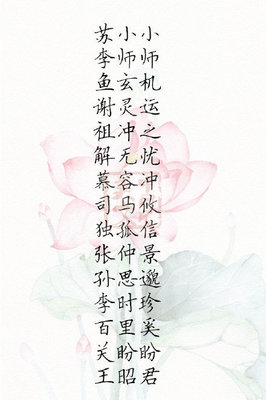 苏小小
李师师
鱼玄机
谢灵运
祖冲之
解无忧
慕容冲
司马攸
独孤信
张仲景
孙思邈
李时珍
百里奚
关盼盼
王昭君